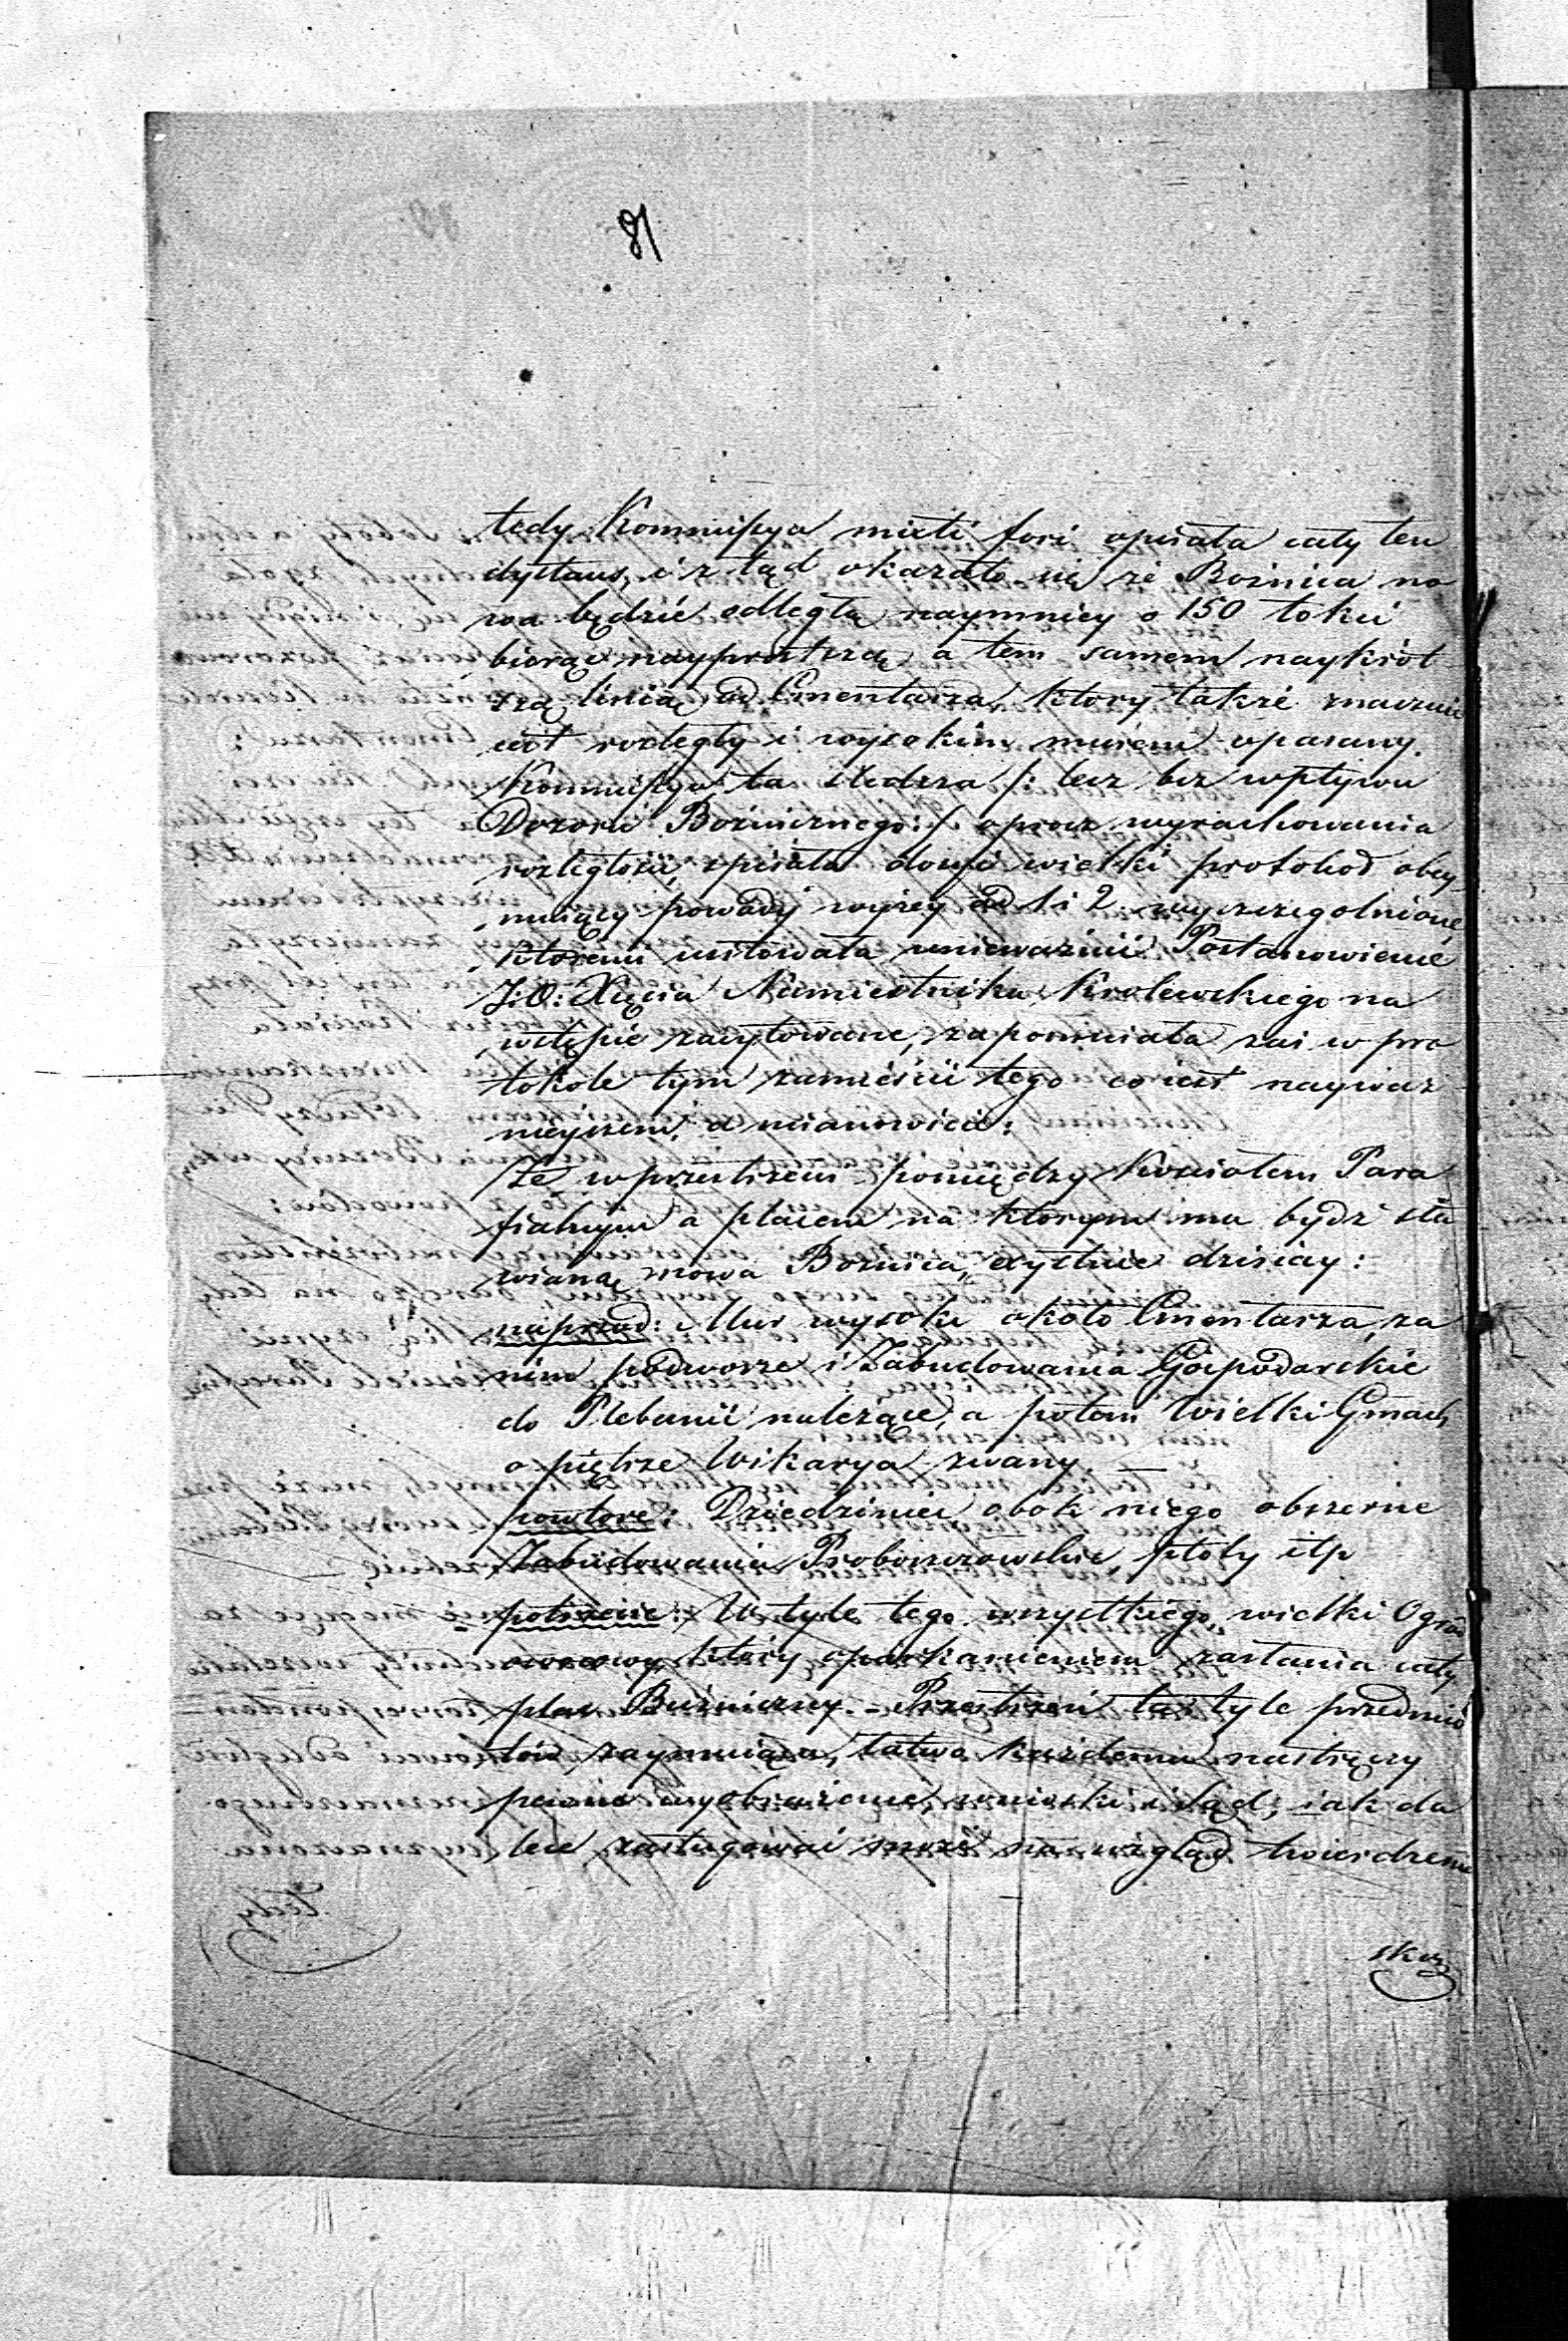 81
tedy Kommissya mieti fori opisała cały ten
dystans, i z tąd okazało się że Bożnica no
wa będzie odległą naymniey o 150 łokci
biorąc nayprostszą, a tem samem naykrót
szą liniią od Cmentarza, ktory także znacznie
iest rozległy i wysokim murem opasany.
Kommissya ta śledcza /: lecz bez wpływu
Dozoru Bożnicznego :/ oprocz wyrachowania
rozległości, spisała dosyć wielki protokoł obey
muiący powody wyżey ad 1 i 2 wyszczegolnione,
ktoremi usiłowała unieważnić Postanowienie
J: O: Xięcia Namiestnika Krolewskiego na
wstępie zacytowane, zapomniała zaś w pro
tokole tym zamieścić tego co iest nayważ
nieyszem, a mianowicie:
Że w przestrzeni pomiędzy Kościołem Para
fialnym a placem na ktorym ma bydź sta
wianą nowa Bożnica, exystuie dzisiay:
naprzod: Mur wysoki około Cmentarza, za
nim podworze i Zabudowania Gospodarskie
do Plebanii należące, a potem Wielki Gmach
o piętrze Wikarya zwany.
powtore: Dziedziniec obok niego obszerne
Zabudowania Proboszczowskie, płoty itp
potrzecie: W tyle tego wszystkiego wielki Ogrod
owocowy, ktory oparkanieniem zasłania cały
plac Bużniczny. - Przestrzeń ta tyle przedmio
tów zaymuiąca, łatwo każdemu nastręczy
pewne wyobrażenie, wnioski i Sąd, iak da
lece zasługować może na wzgląd twierdzenie